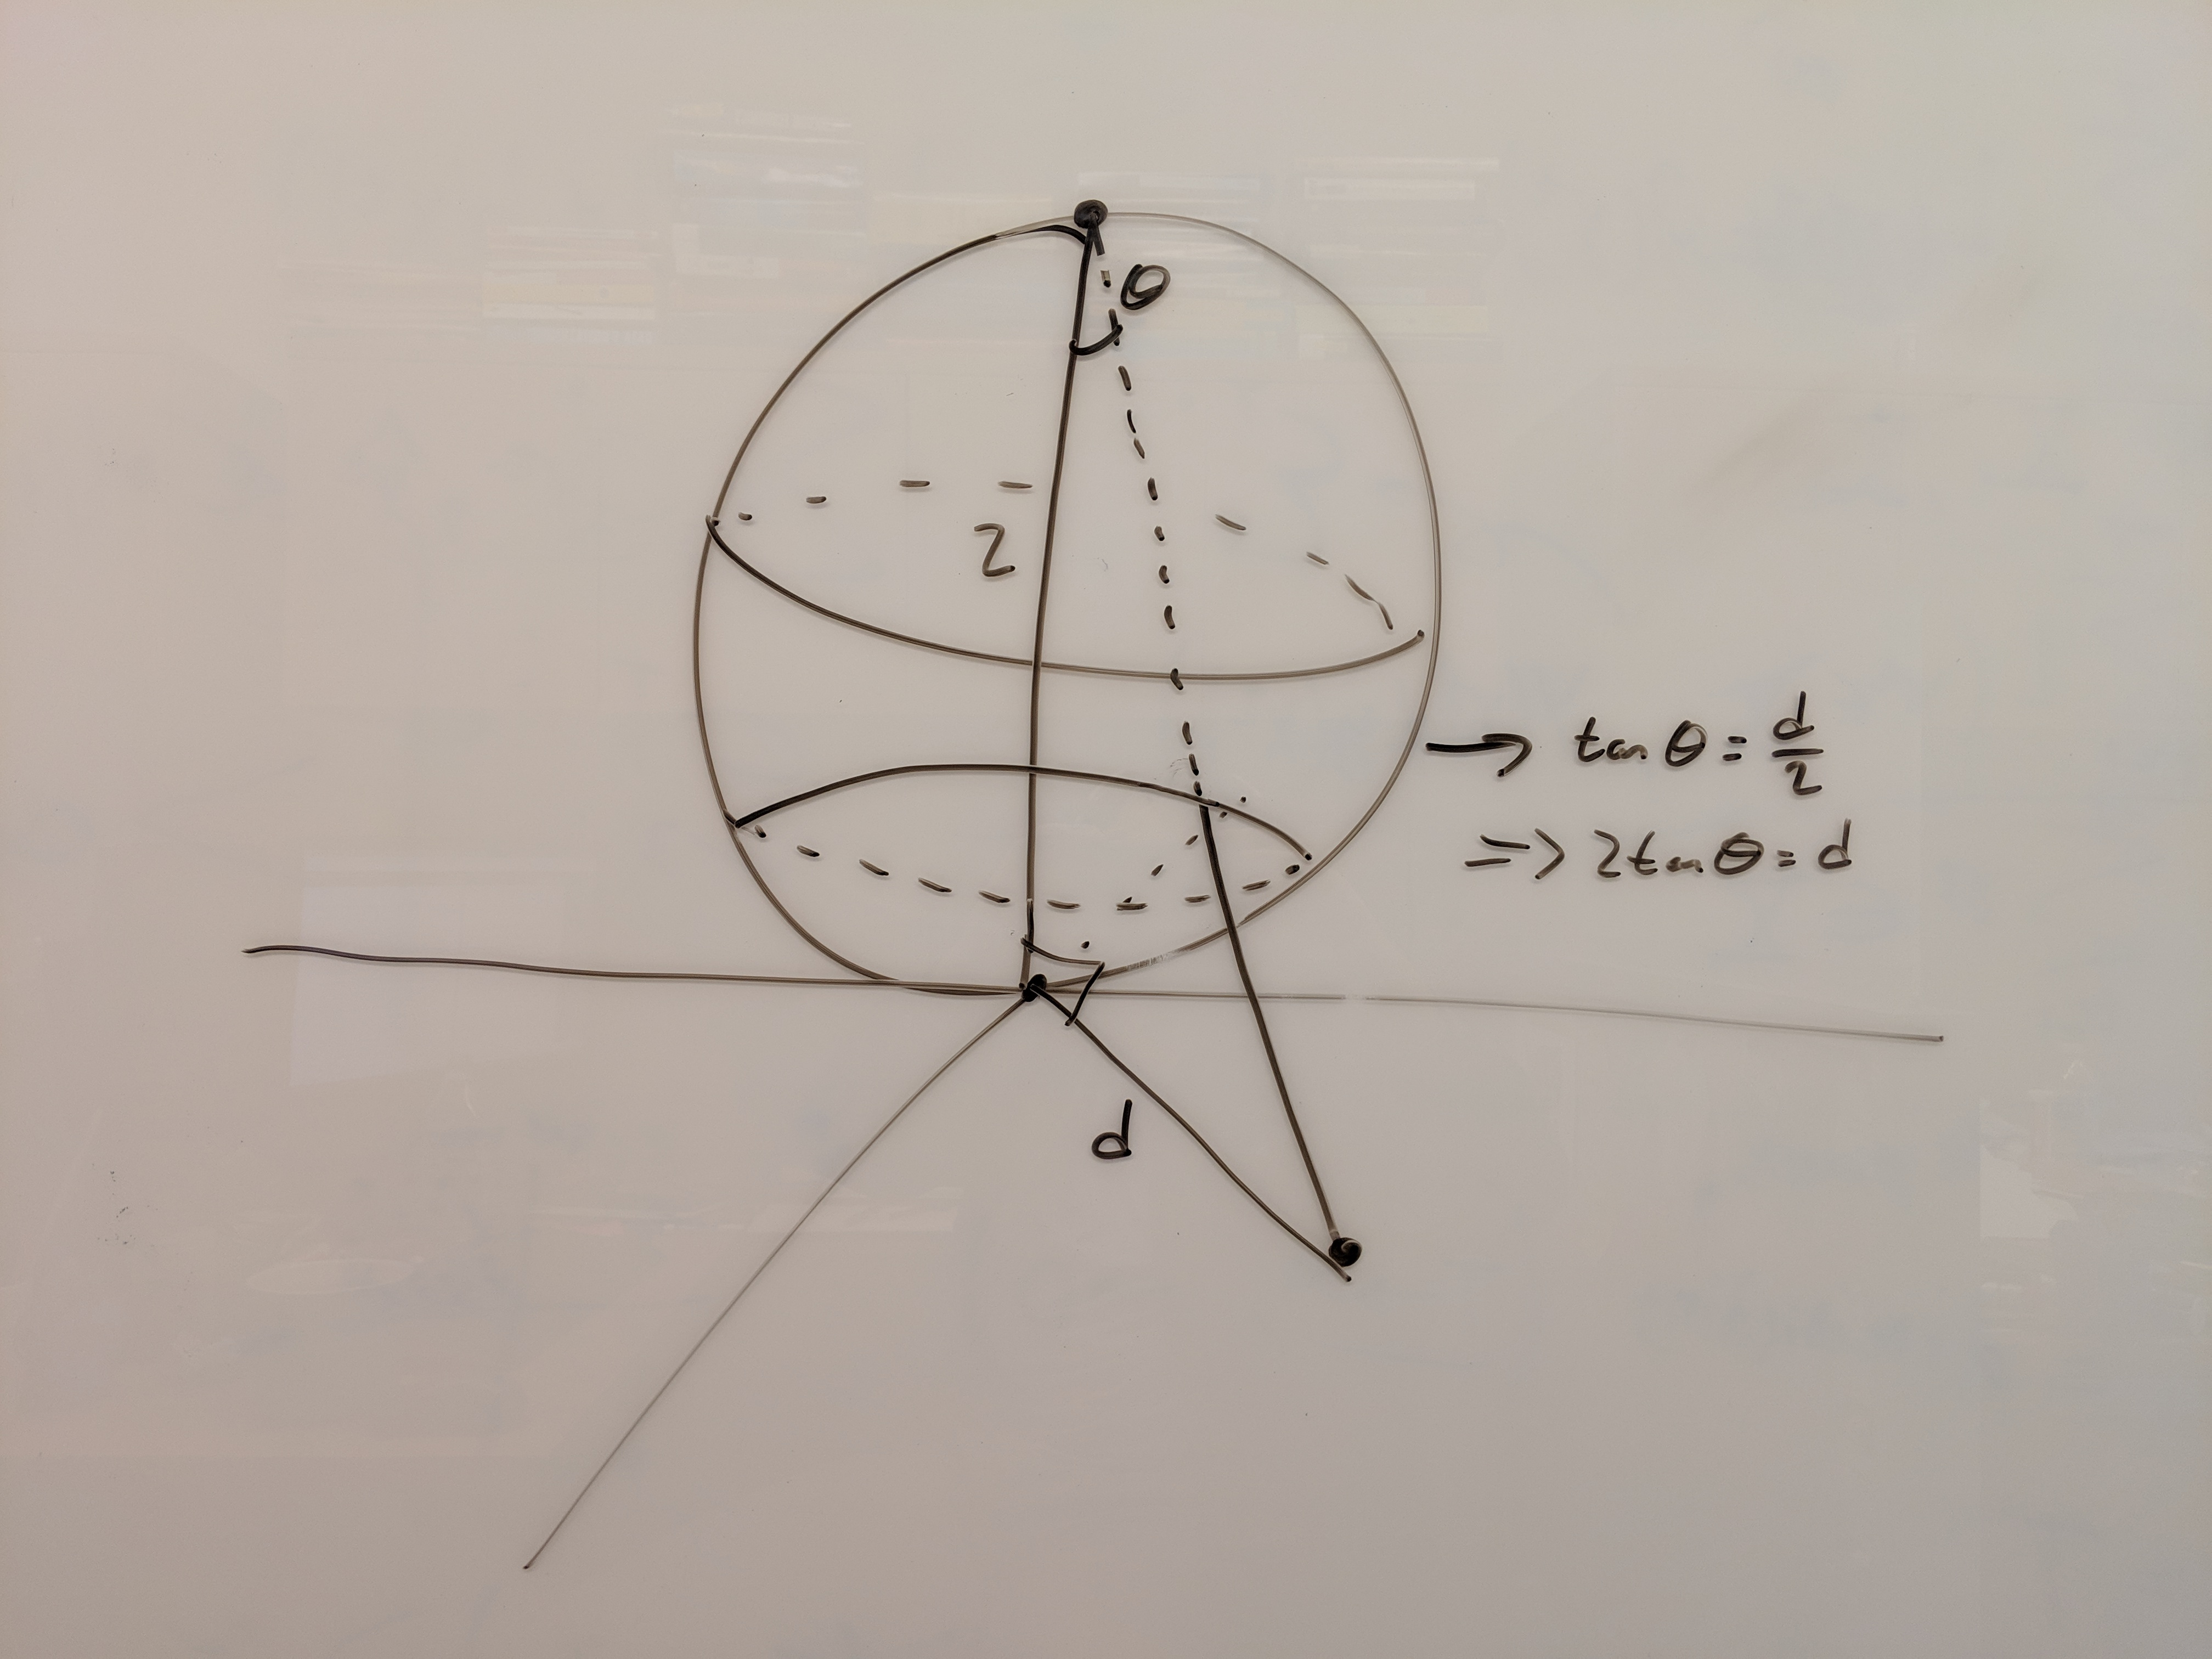 θ
2
→ tan θ = d/2
⇒ 2tan θ = d
d